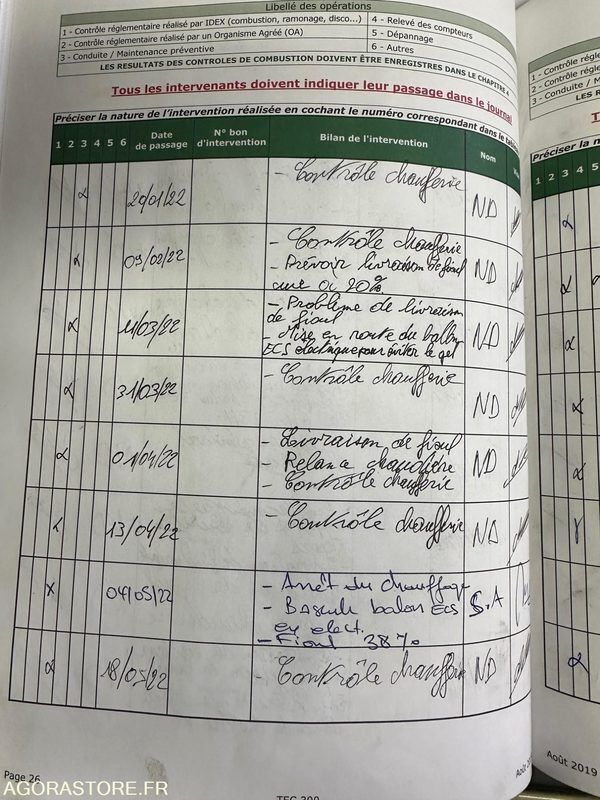 Libellé des opérations
1 - Contrôle réglementaire réalisé par IDEX (combustion, ramonage, disco...) 4 - Relevé des compteurs
2 - Contrôle réglementaire réalisé par un Organisme Agréé (OA) 5 - Dépannage
3 - Conduite / Maintenance préventive 6 - Autres
LES RESULTATS DES CONTROLES DE COMBUSTION DOIVENT ÊTRE ENREGISTRES DANS LE CHAPITRE 4
Tous les intervenants doivent indiquer leur passage dans le journal
Préciser la nature de l'intervention réalisée en cochant le numéro correspondant dans le
1 2 3 4 5 6 Date de passage N° bon d'intervention Bilan de l'intervention Nom
20/01/22 - Contrôle chaufferie ND
09/02/22 - Contrôle chaufferie ND
- Prévoir livraison de fioul
cuve à 20%
11/03/22 - Problème de livraison ND
de fioul
- Mise en route du ballon
ECS électrique pour éviter le gel
31/03/22 - Contrôle chaufferie ND
01/04/22 - Livraison de fioul ND
- Relance chaudière
- Contrôle chaufferie
13/04/22 - Contrôle chaufferie ND
04/05/22 - Arrêt du chauffage S.A
- Bascule balon ECS
en elect.
- Fioul 38%
18/05/22 - Contrôle chaufferie ND
Page 26
TEC 300
Août
1 - Contrôle
2 - Contrôle
3 - Conduite /
Préciser la
1 2 3 4 5
Août 2019
AGORASTORE.FR